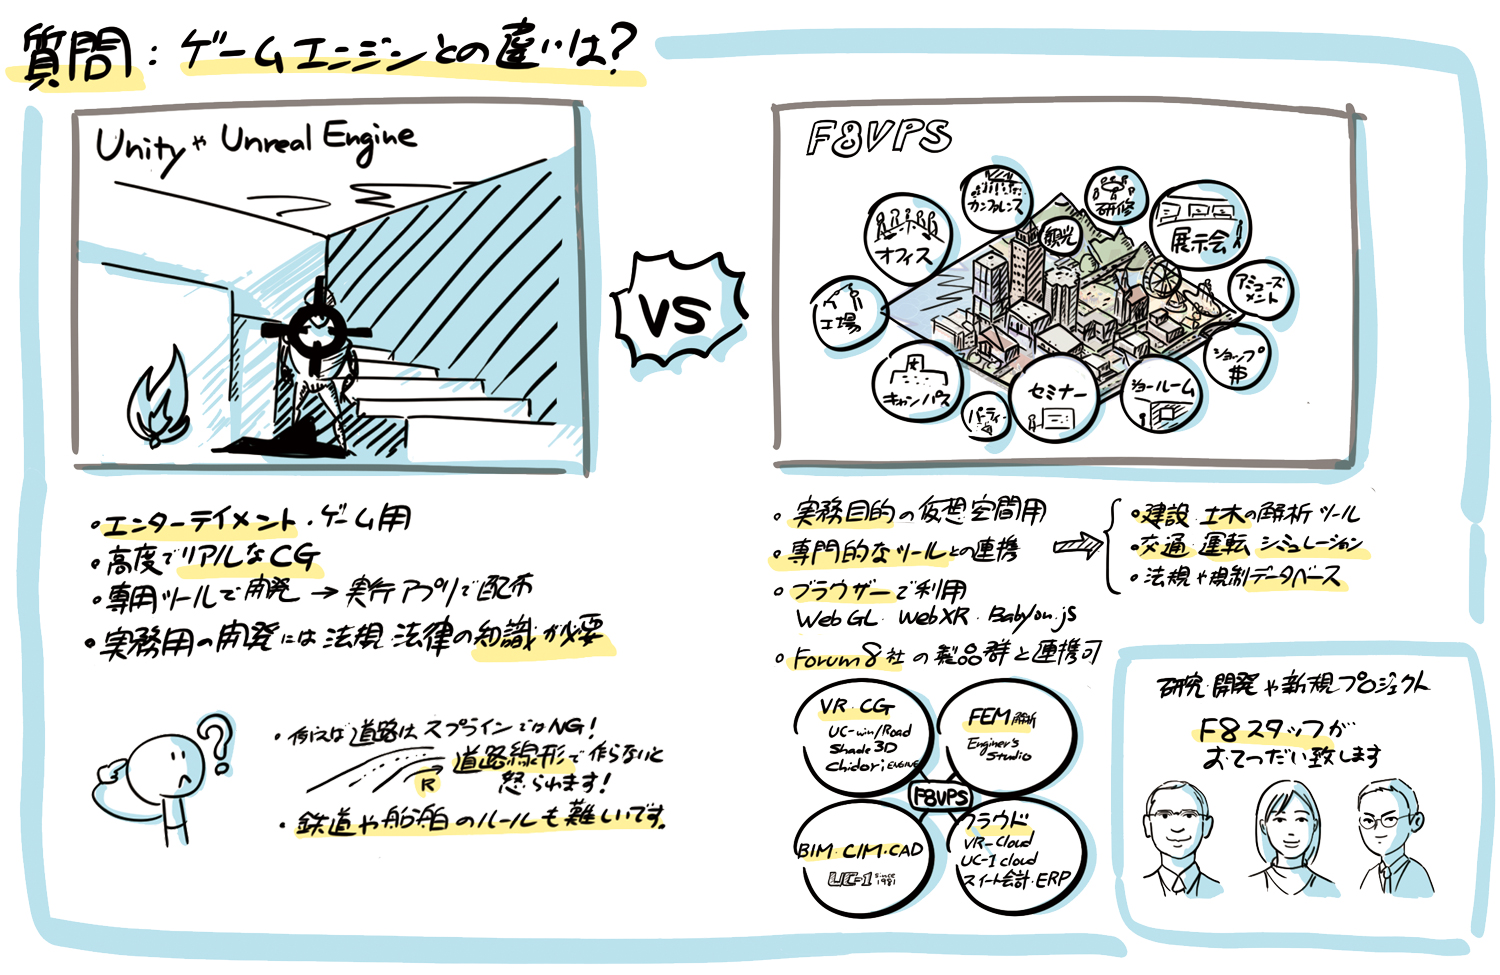 質問：ゲームエンジンとの違いは？
Unityや Unreal Engine
VS
F8VPS
カンファレンス
研修
オフィス
観光
展示会
アミューズメント
工場
ショップ
$
キャンパス
パーティー
セミナー
ショールーム
・エンターテイメント・ゲーム用
・高度でリアルなCG
・専用ツールで開発→実行アプリで配布
・実務用の開発には法規・法律の知識が必要
?
・例えば道路はスプラインではNG!
道路線形で作らないと
R
怒られます!
・鉄道や船舶のルールも難しいです。
・実務目的の仮想空間用
・専門的なツールとの連携
・建設・土木の解析ツール
・交通・運転シミュレーション
・法規や規制データベース
・ブラウザーで利用
WebGL・WebXR・Babylon.js
・Forum8社の製品群と連携可
VR・CG
UC-win/Road
Shade3D
Chidori ENGINE
FEM解析
Enginer's
Studio
F8VPS
BIM・CIM・CAD
UC-1 since 1981
クラウド
VR-Cloud
UC-1 cloud
スイート会計・ERP
研究・開発や新規プロジェクト
F8スタッフが
おてつだい致します